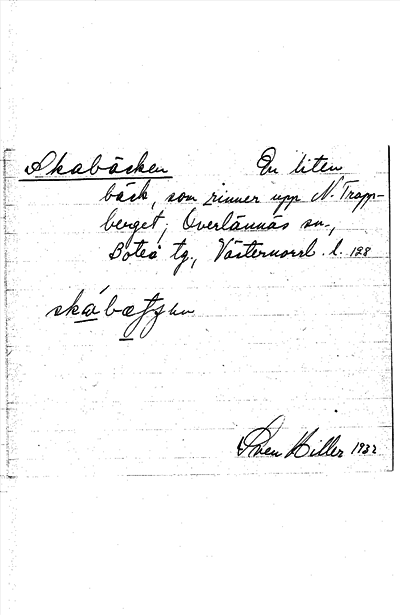 Skabäcken En liten
bäck, som rinner upp N. Trapp-
berget, Överlännäs sn.,
Boteå tg., Västernorrl. l. 128
Sven Hiller 1932